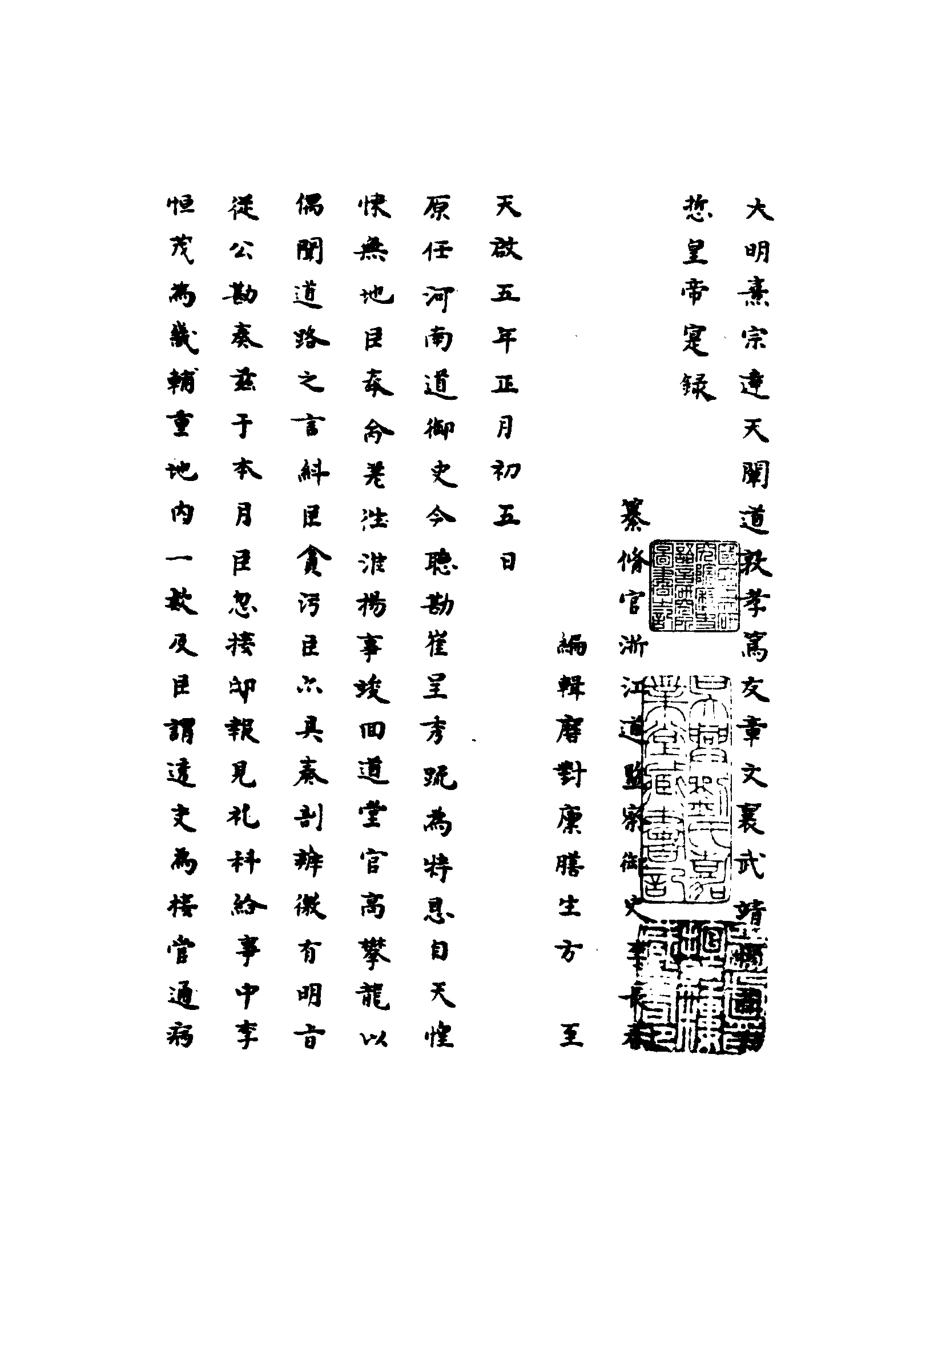 大明熹宗達天闡道敦孝篤友章文襄武靖穆
悊皇帝寔録
纂脩官浙江道監察御史李長春
編輯磨對廩膳生方至
天啟五年正月初五日
原任河南道御史今聽勘崔呈秀疏為特恩自天惶
悚無地臣奉命差徃淮揚事竣回道堂官高攀龍以
偶聞道路之言糾臣貪污臣亦具奏剖辨徼有明旨
從公勘奏兹于本月臣忽接邸報見礼科給事中李
恒茂為畿輔重地内一欵及臣謂遠吏為接官通病